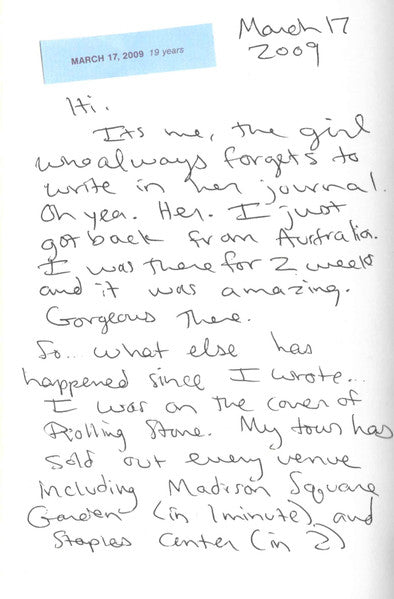 MARCH 17, 2009 19 years
March 17
2009
Hi.
Its me, the girl
who always forgets to
write in her journal.
Oh yea. Her. I just
got back from Australia.
I was there for 2 weeks
and it was amazing.
Gorgeous There.
So... what else has
happened since I wrote...
I was on the cover of
Rolling Stone. My tour has
sold out every venue
including Madison Square
Garden (in 1 minute) and
Staples Center (in 2)